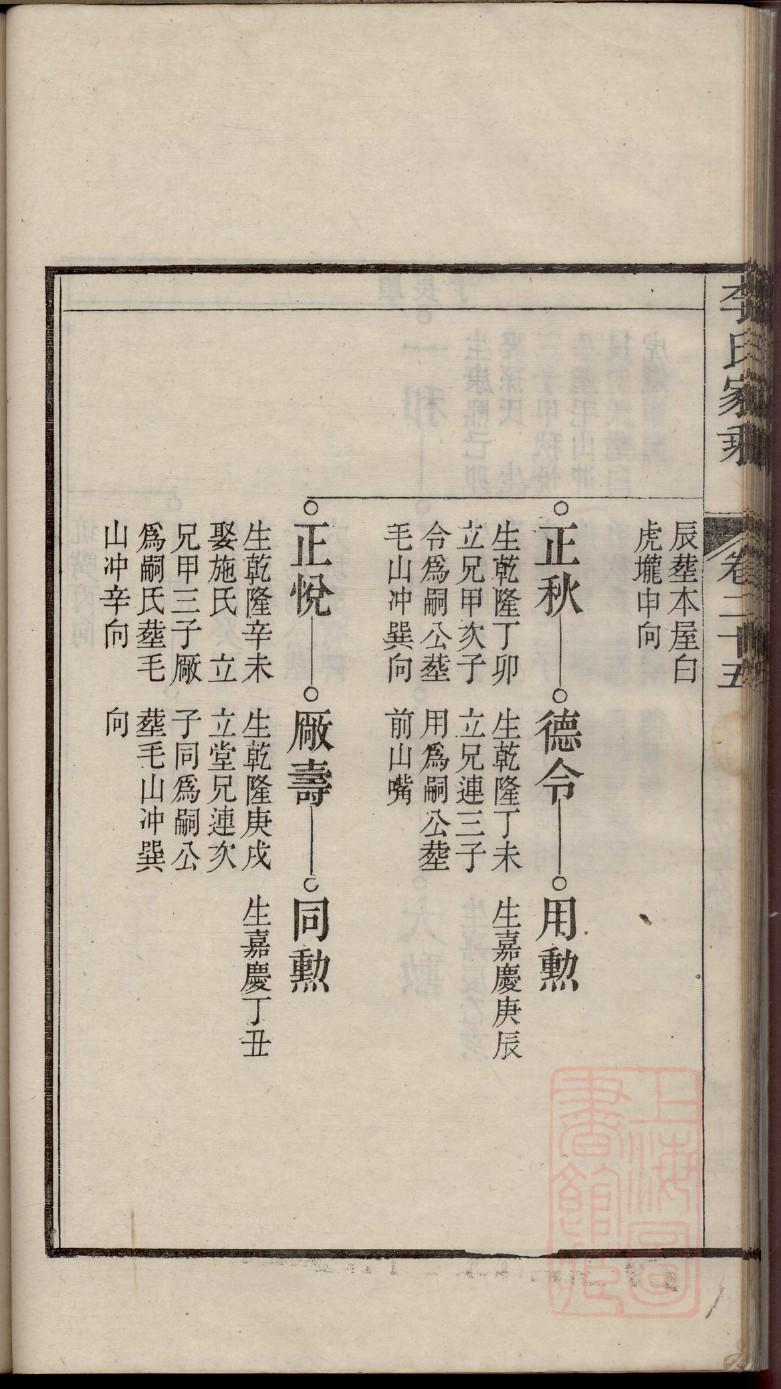 李氏家乘
卷二十五
辰塟本屋白
虎壠申向
正秋
生乾隆丁卯
立兄甲次子
令爲嗣公塟
毛山冲巽向
德令
生乾隆丁未
立兄連三子
用爲嗣公塟
前山嘴
用勲
生嘉慶庚辰
正悅
生乾隆辛未
娶施氏 立
兄甲三子厰
爲嗣氏塟毛
山冲辛向
厰壽
生乾隆庚戌
立堂兄連次
子同爲嗣公
塟毛山冲巽
向
同勲
生嘉慶丁丑
上海圖
書館藏